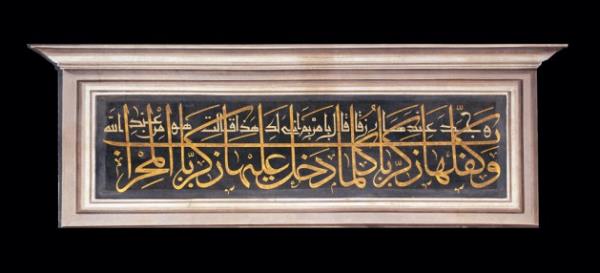 وكفلها زكريا كلما دخل عليها زكريا المحراب
وجد عندها رزقا قال يا مريم انى لك هذا قالت هو من عند الله